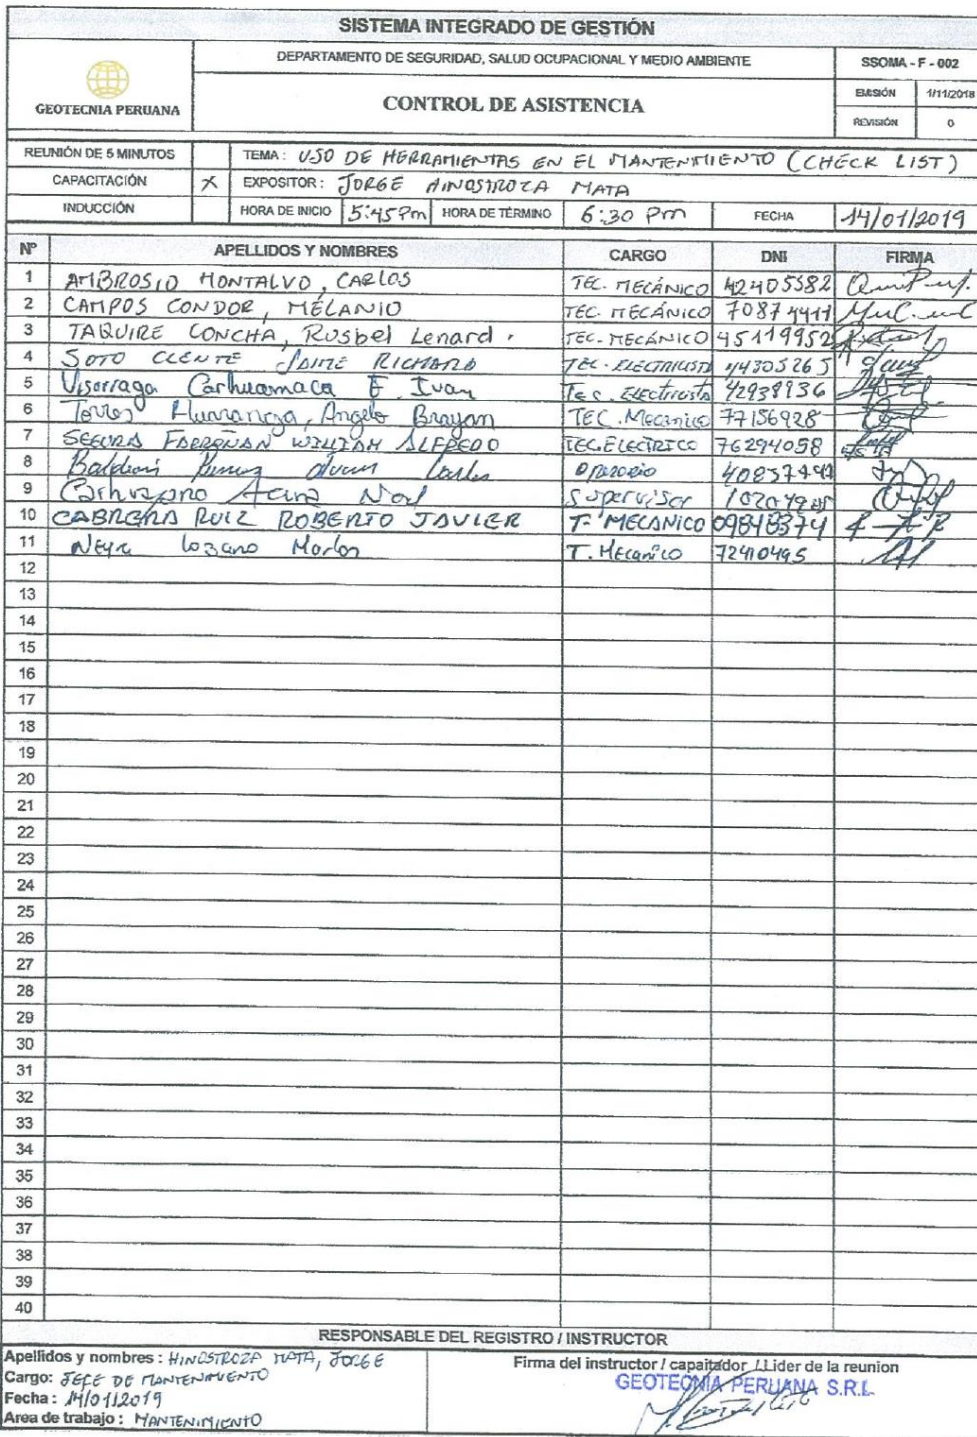 SISTEMA INTEGRADO DE GESTIÓN
GEOTECNIA PERUANA
DEPARTAMENTO DE SEGURIDAD, SALUD OCUPACIONAL Y MEDIO AMBIENTE
CONTROL DE ASISTENCIA
SSOMA - F - 002
EMISIÓN 1/11/2018
REVISIÓN 0
REUNIÓN DE 5 MINUTOS TEMA: USO DE HERRAMIENTAS EN EL MANTENIMIENTO (CHECK LIST)
CAPACITACIÓN X EXPOSITOR: JORGE HINOSTROZA MATA
INDUCCIÓN HORA DE INICIO 5:45 Pm HORA DE TÉRMINO 6:30 Pm FECHA 14/01/2019
Nº APELLIDOS Y NOMBRES CARGO DNI FIRMA
1 AMBROSIO MONTALVO, CARLOS TEC. MECÁNICO 42405582
2 CAMPOS CONDOR, MELANIO TEC. MECÁNICO
3 TAQUIRE CONCHA, Rusbel Lenard. TEC. MECÁNICO 45119952
4 SOTO CLENTE JAIME RICHARD TEC. ELECTRICISTA 44305265
5 Visorraga Carhuamaca E. Ivan Tec. Electricista 42938936
6 Torres Huaranga, Angelo Brayan TEC. Mecanico 77156928
7 SEGURA FARROÑAN WILLIAM ALFREDO TEC. ELECTRICO 76294058
8 Carlos Operario
9 Supervisor
10 CABRERA RUIZ ROBERTO JAVIER T. MECANICO 09848374
11 Neyra Lozano Marlon T. Mecanico 72410495
12
13
14
15
16
17
18
19
20
21
22
23
24
25
26
27
28
29
30
31
32
33
34
35
36
37
38
39
40
RESPONSABLE DEL REGISTRO / INSTRUCTOR
Apellidos y nombres : HINOSTROZA MATA, JORGE
Cargo: JEFE DE MANTENIMIENTO
Fecha : 14/01/2019
Area de trabajo : MANTENIMIENTO
Firma del instructor / capaitador / Lider de la reunion
GEOTECNIA PERUANA S.R.L.